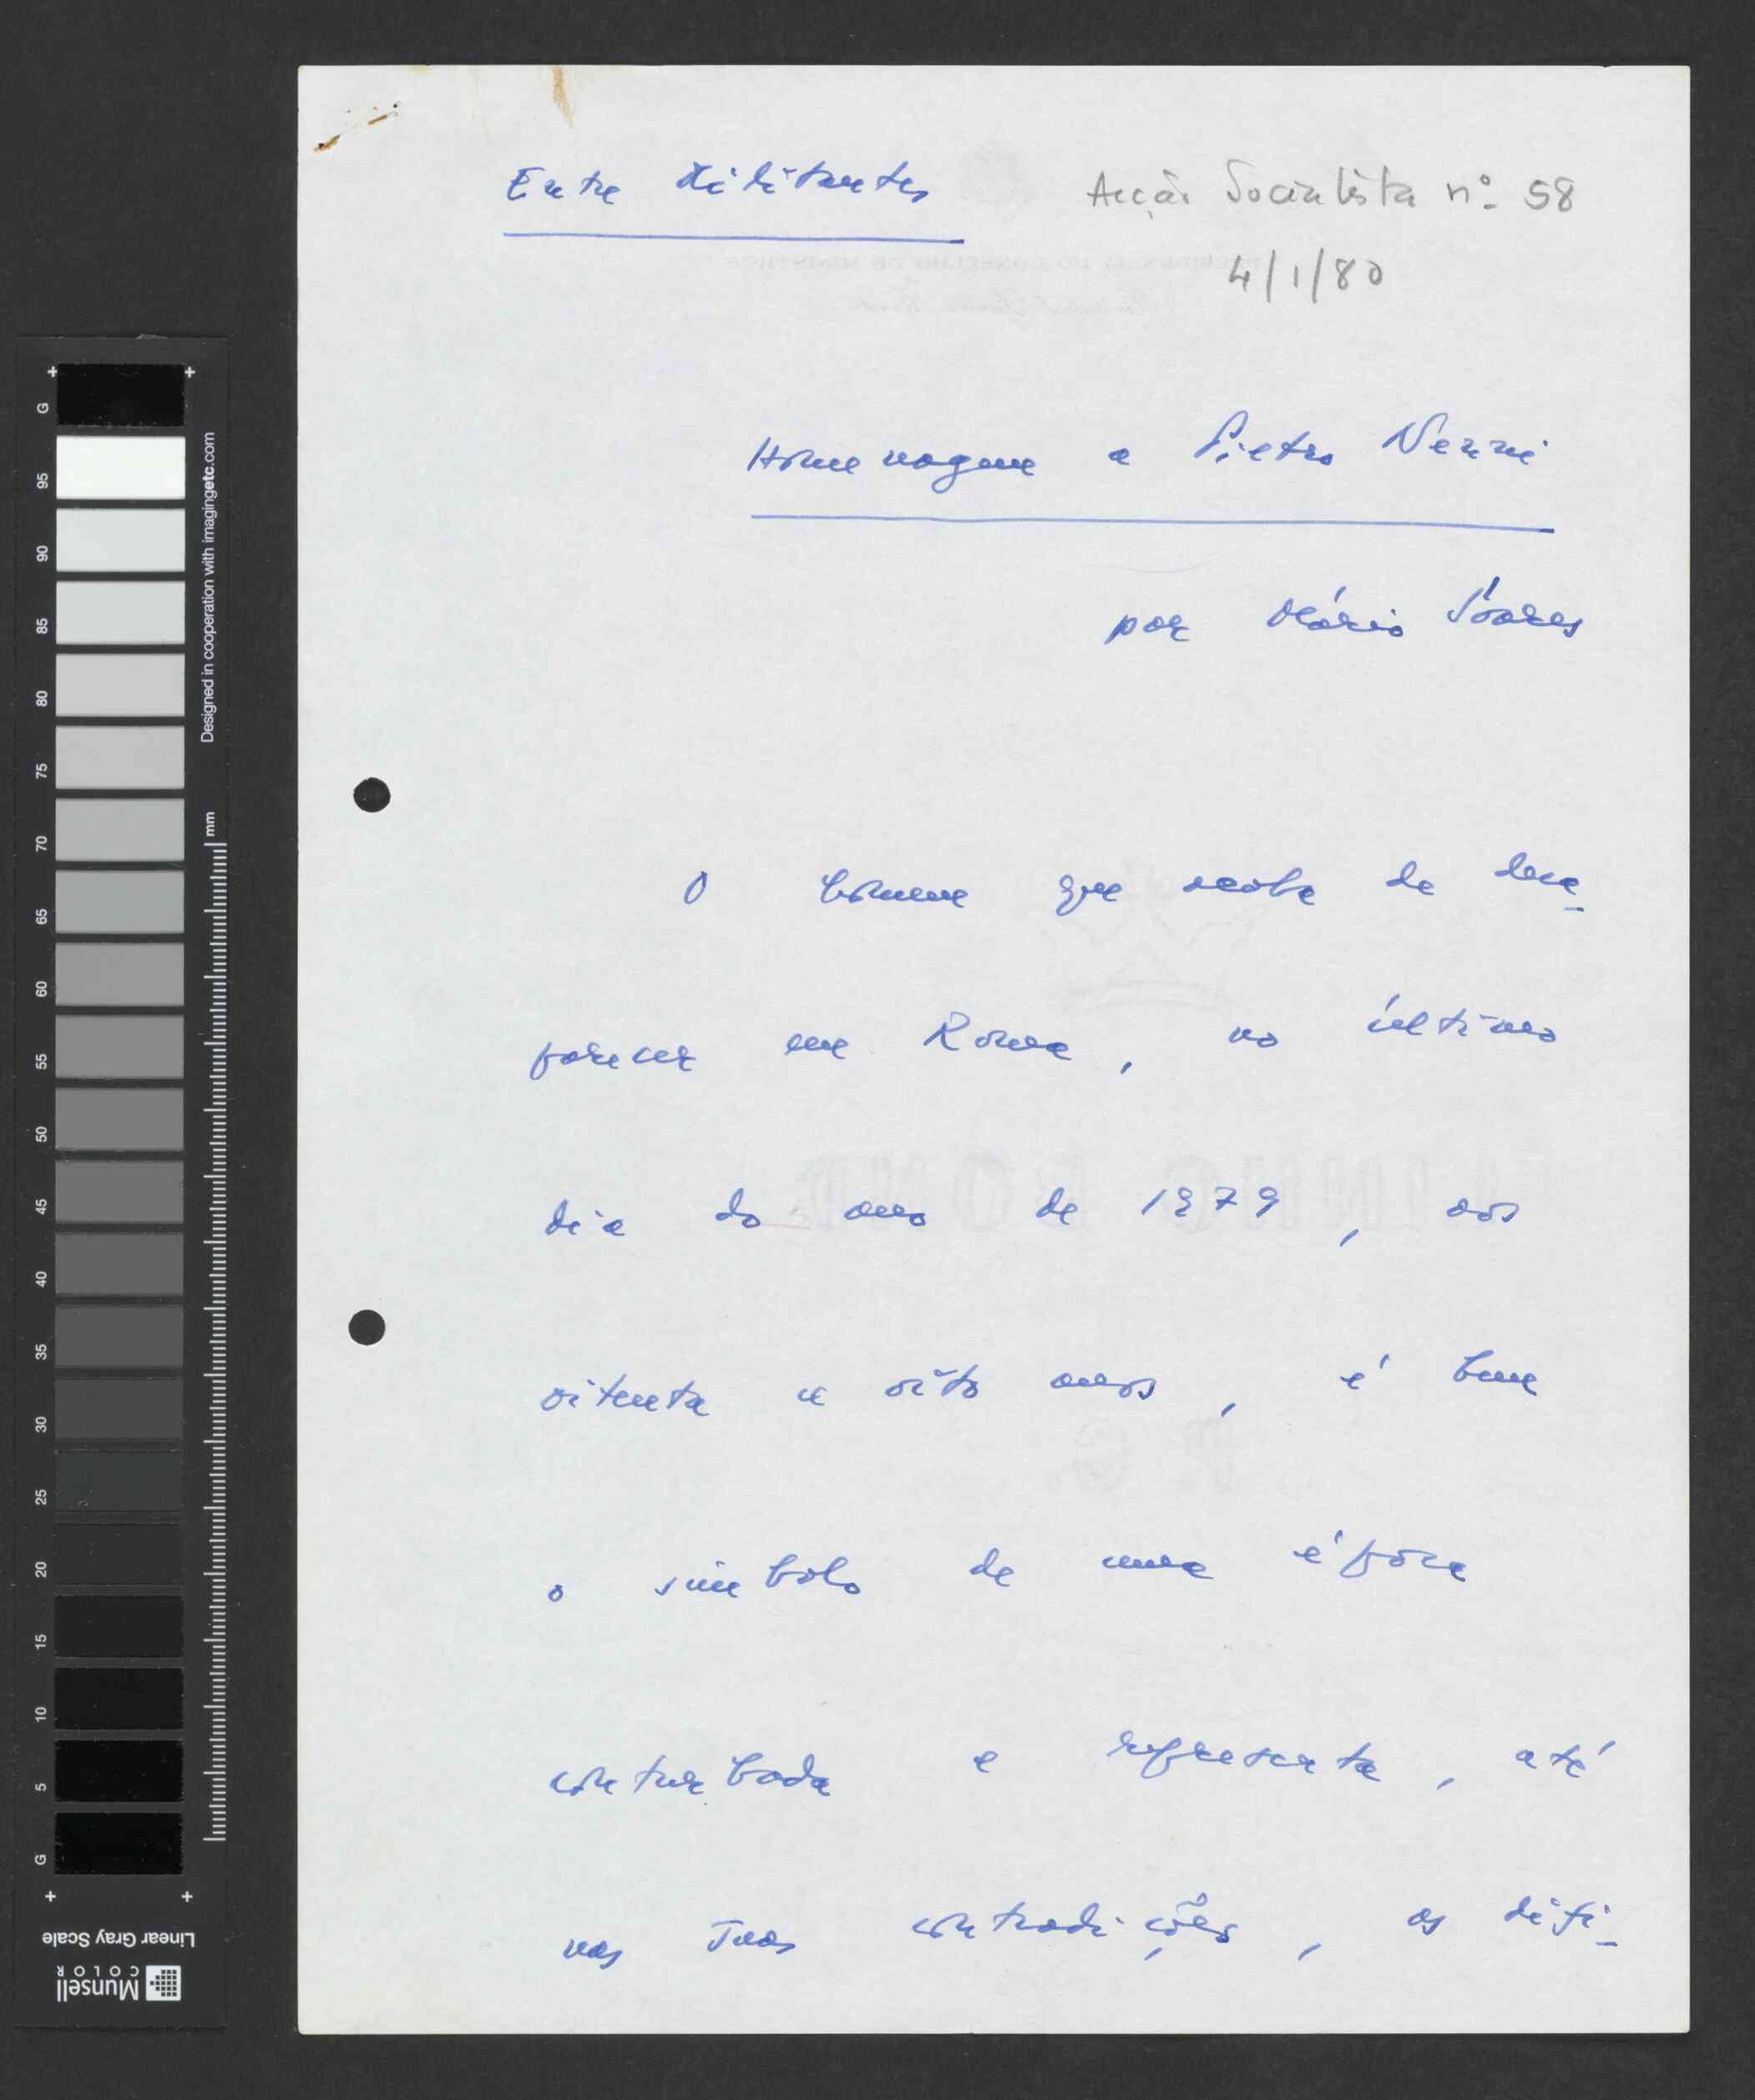 Entre Militantes
Acção Socialista nº 58
4/1/80
Homenagem a Pietro Nenni
por Mário Soares
O homem que acaba de desa-
parecer em Roma, no último
dia do ano de 1979, aos
oitenta e oito anos, é bem
o símbolo de uma época
conturbada e representa, até
nas suas contradições, as difi-
G
95
90
85
80
75
70
65
60
55
50
45
40
35
30
25
20
15
10
5
G
Designed in cooperation with imagingetc.com
mm
Linear Gray Scale
Munsell
COLOR